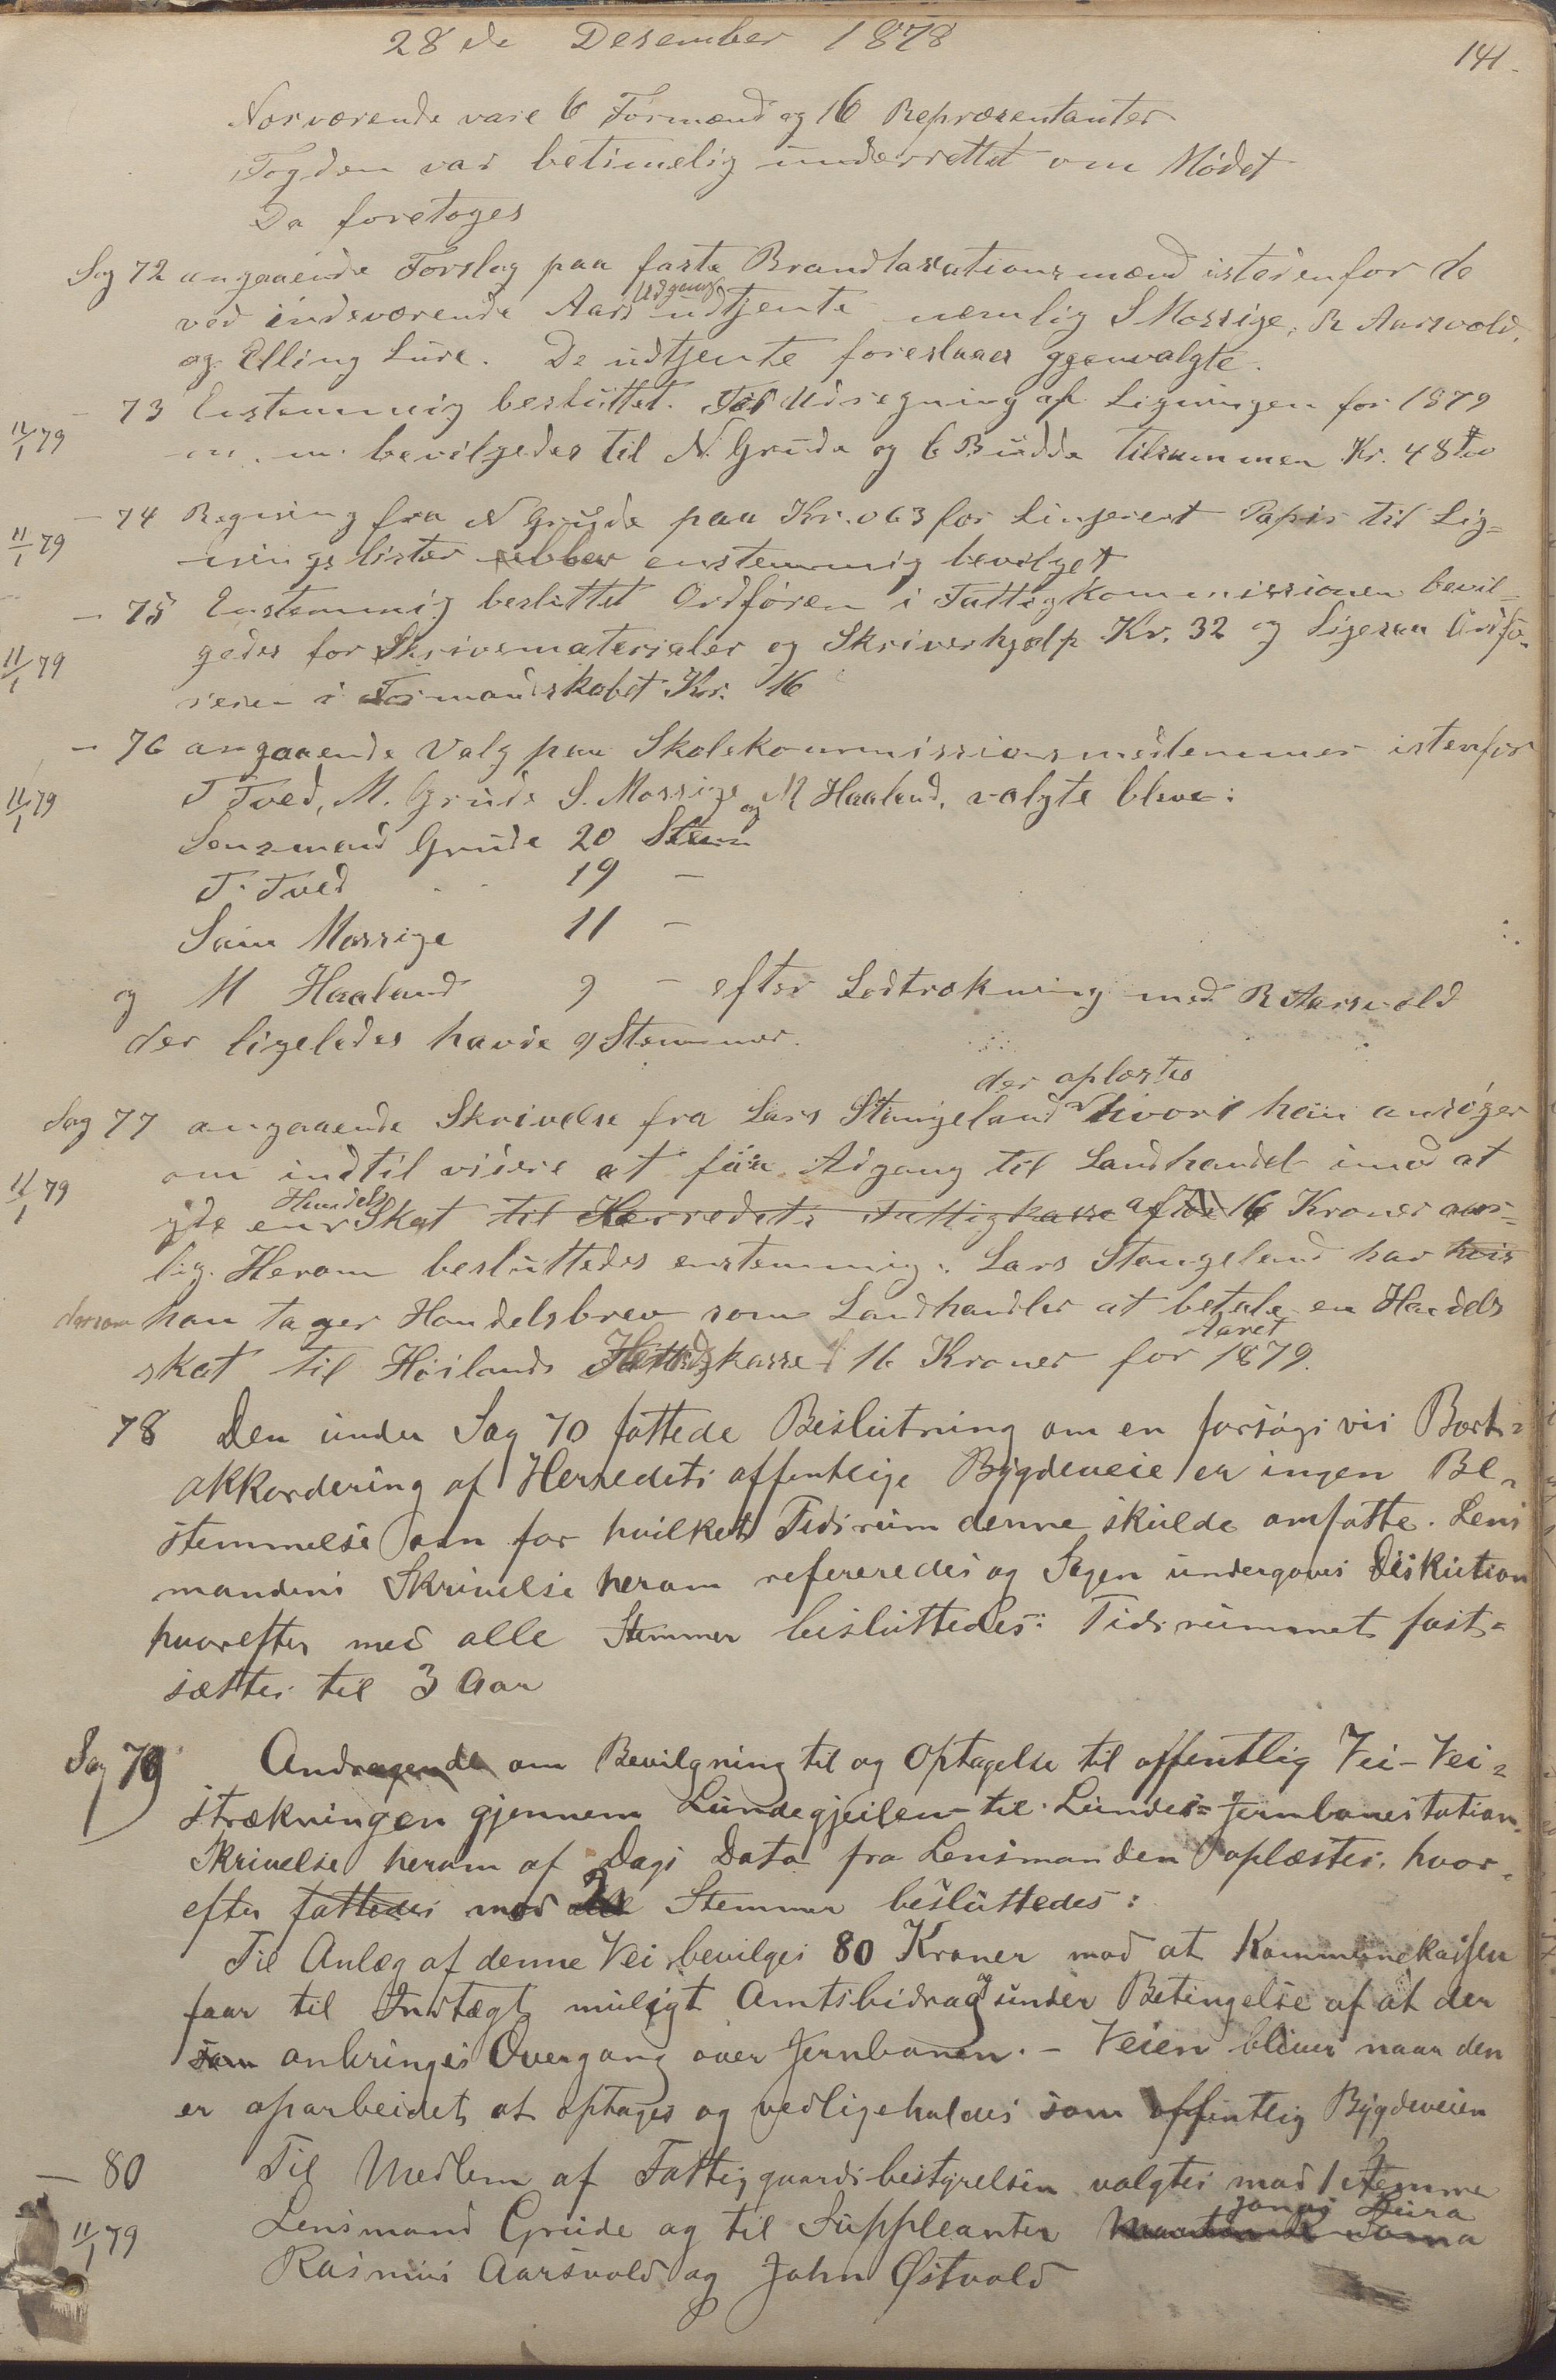 28de Desember 1878
141.
Nærværende vare 6 Formænd og 16 Repræsentanter
Fogden var betimelig underrettet om Mødet
Da foretoges
Sag 72 angaaende Forslag paa faste Brandtaxationsmænd istedenfor de
ved indeværende Aars Udgang udtjente nemlig S Mossige, R Aarsvold,
og Elling Lure. De udtjente foreslaaes gjenvalgte.
— 73 Enstemmig besluttet. For Udregning af Ligningen for 1879
11/1 79
m. m. bevilgedes til N. Grude og C Budde tilsammen Kr. 48
— 74 Regning fra N Grude paa Kr. 063 for Linjeret Papir til Lig=
11/1 79
ningslister enstemmig bevilget
— 75 Enstemmig besluttet Ordføren i Fattigkommissionen bevil=
gedes for Skrivematerialer og Skriverhjælp Kr. 32 og Ligesaa Ordfø-
11/1 79
reren i Formandskabet Kr. 16
— 76 angaaende Valg paa Skolekommissionsmedlemmer istenfor
11/1 79
T Tved, M. Grude S. Mossige og M Haaland, valgte bleve:
Lensmand Grude 20 Stem
T. Tved 19 —
Sam Mossige 11 —
og M Haaland 9 — efter Lodtrækning med R Aarsvold
der ligeledes havde 9 Stemmer.
Sag 77 angaaende Skrivelse fra Lars Stangeland der oplæstes hvori han ansøger
om indtil videre at faa Adgang til Landhandel imod at
11/1 79
yde en Handels Skat til Herredets Fattigkasse af 16 Kroner aar=
lig. Herom besluttedes enstemmig: Lars Stangeland har hvis
dersom han tager Handelsbrev som Landhandler at betale en Handels
skat til Høilands kasse 16 Kroner for Aaret 1879.
78 Den under Sag 70 fattede Beslutning om en forsøgsvis Bort=
akkordering af Herredets offentlige Bygdeveie er ingen Be=
stemmelse om for hvilket Tidsrum denne skulde omfatte. Lens
mandens Skrivelse herom refereredes og Sagen undergaves Diskution
hvorefter med alle Stemmer besluttedes: Tidsrummet fast=
sættes til 3 Aar
Sag 79 Andragende om Bevilgning til og Optagelse til offentlig Vei - Vei=
strækningen gjennem Lundegjeilen til Lunde=Jernbanestation.
Skrivelse herom af Dags Dato fra Lensmanden oplæstes, hvor=
efter fattedes mod 2 Stemmer besluttedes:
Til Anlæg af denne Vei bevilges 80 Kroner mod at Kommunekassen
faar til Indtægt muligt Amtsbidrag og under Betingelse af at der
som anbringes Overgang over Jernbanen. – Veien bliver naar den
er oparbeidet at optages og vedligeholdes som offentlig Bygdeveien
— 80 Til Medlem af Fattiggaardsbestyrelsen valgtes mod 1 Stemme
11/1 79
Lensmand Grude og til Suppleanter Jonas Lura
Rasmus Aarsvold og John Østvold